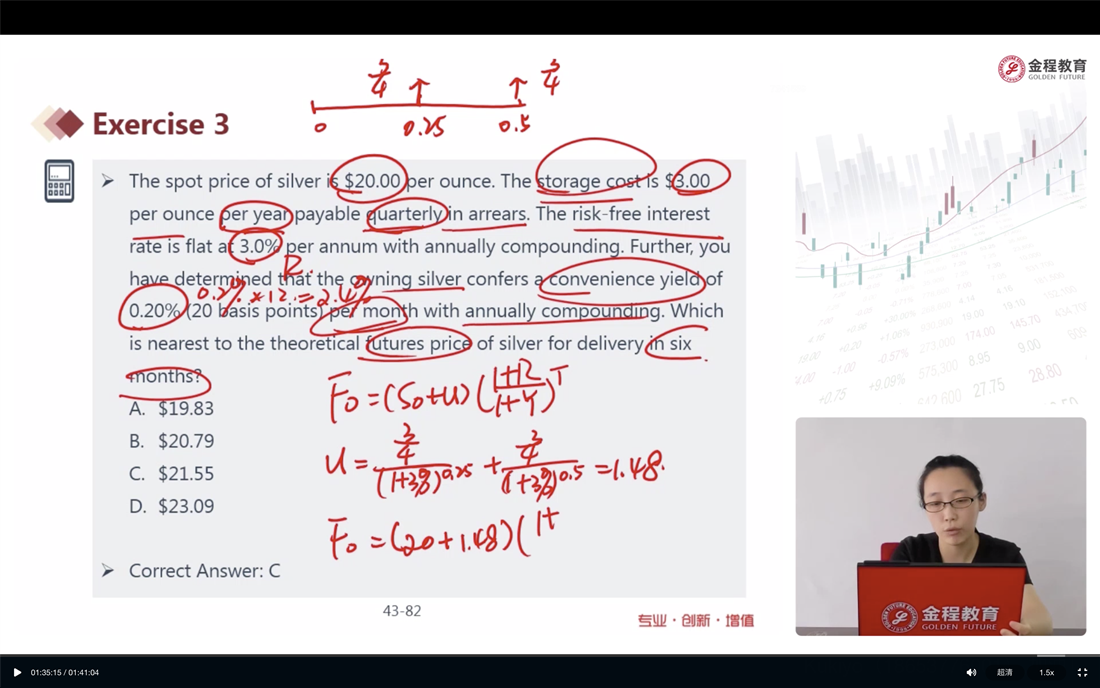 金程教育
GOLDEN FUTURE
3/4
3/4
0
0.25
0.5
Exercise 3
➤ The spot price of silver is $20.00 per ounce. The storage cost is $3.00
per ounce per year payable quarterly in arrears. The risk-free interest
rate is flat at 3.0% per annum with annually compounding. Further, you
R.
have determined that the owning silver confers a convenience yield of
0.2% * 12 = 2.4%
0.20% (20 basis points) per month with annually compounding. Which
is nearest to the theoretical futures price of silver for delivery in six
months?
A. $19.83
B. $20.79
C. $21.55
D. $23.09
F₀ = (S₀+U)((1+R)/(1+Y))^T
U = (3/4)/(1+3%)^0.25 + (3/4)/(1+3%)^0.5 = 1.48.
F₀ = (20+1.48)(1+
➤ Correct Answer: C
43-82
专业·创新·增值
174.00
145.70
+1.08%
19.10
+9.09%
575,300
8.95
9.00
+0.75
27.75
28.80
金程教育
GOLDEN FUTURE
01:35:15 / 01:41:04
超清
1.5x